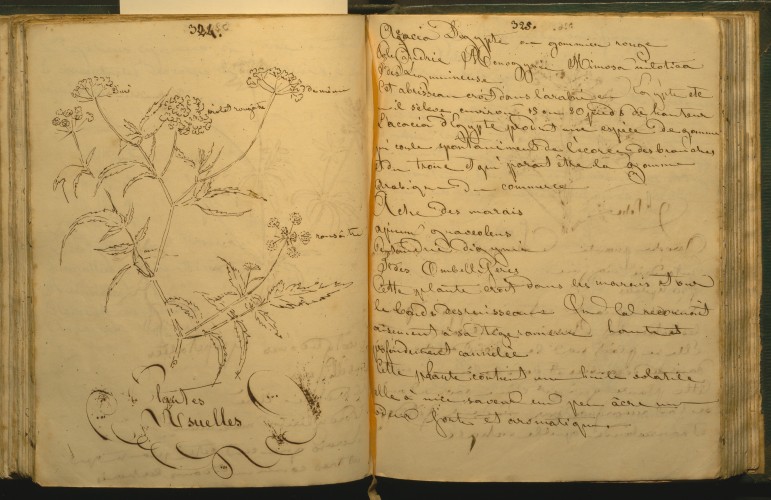 324.
rousâtre
Plantes
Usuelles
325.
Acacia D'egypte ou gommier rouge
Monogynie Mimosa nilotica
Est abrisseau croit dans l'arabie L'egypte etc
il s'élève environ 15 ou 20 pieds de hauteur
l'acacia D'egypte produit une espèce De gomme
qui coule spontanément de l'ecorce des branches
et du tronc et qui parait être la gomme
arabique Du commerce
Ache Des marais
apium graveolens
Pentandrie digynie
des Ombellifères
Cette plante croit dans les marais et sur
le bords des ruisseaux On la reconnoit
aisement à sa tige rameuse haute et
profondement cannelée
Cette plante contient une huile volatile
elle a une saveur un peu âcre une
odeur forte et aromatique